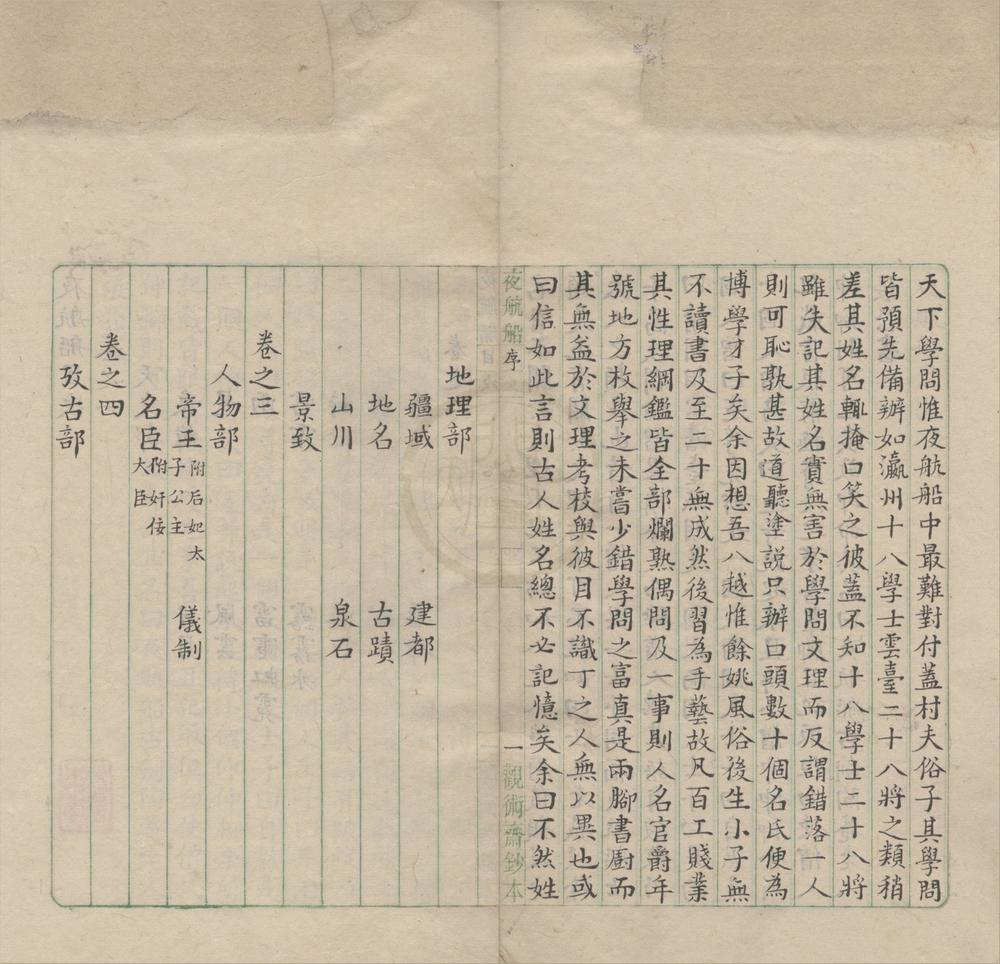 天下學問惟夜航船中最難對付蓋村夫俗子其學問
皆預先備辦如瀛州十八學士雲臺二十八將之類稍
差其姓名輒掩口笑之彼蓋不知十八學士二十八將
雖失記其姓名實無害於學問文理而反謂錯落一人
則可恥孰甚故道聽塗說只辦口頭數十個名氏便為
博學才子矣余因想吾八越惟餘姚風俗後生小子無
不讀書及至二十無成然後習為手藝故凡百工賤業
其性理綱鑑皆全部爛熟偶問及一事則人名官爵年
號地方枚舉之未嘗少錯學問之富真是兩腳書廚而
其無益於文理考校與彼目不識丁之人無以異也或
曰信如此言則古人姓名總不必記憶矣余曰不然姓
夜航船 序 一 觀術齋鈔本
地理部
疆域 建都
地名 古蹟
山川 泉石
景致
卷之三
人物部
帝王 附后妃太子公主 儀制
名臣 附奸佞大臣
卷之四
攷古部